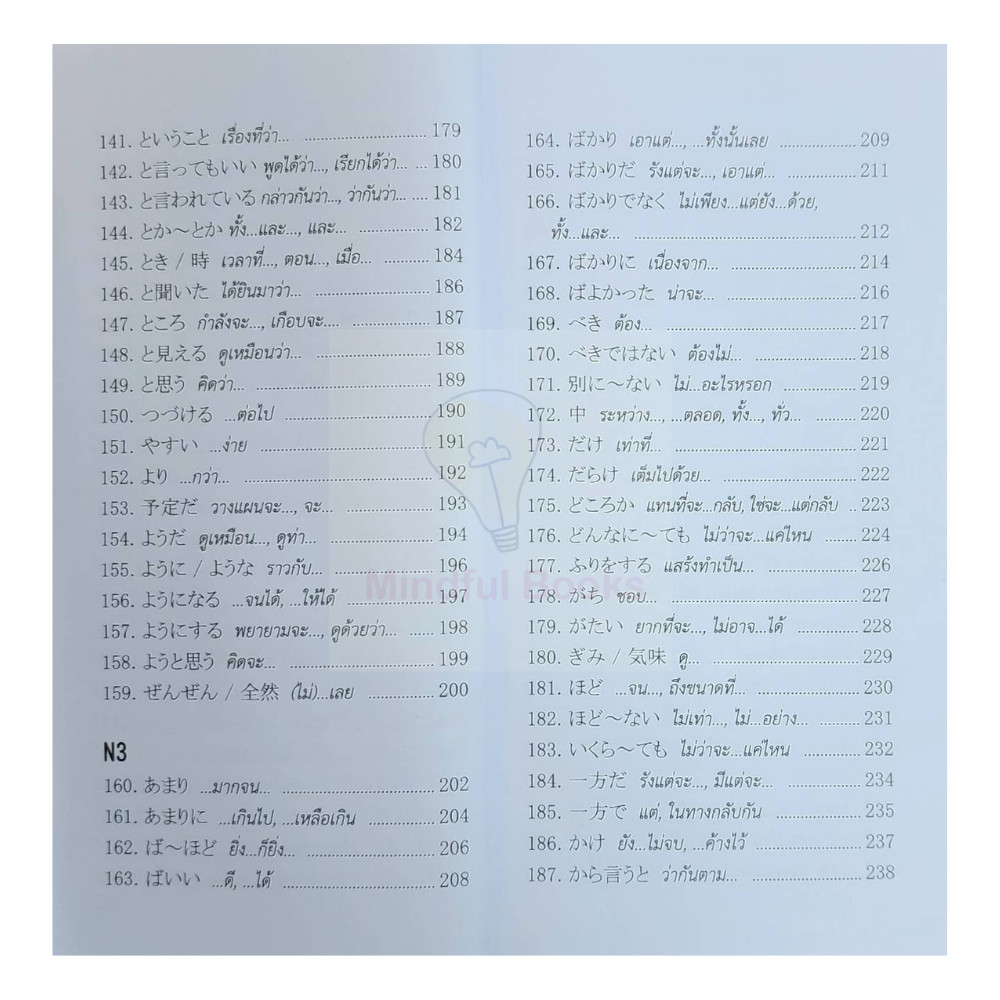 141. ということ เรื่องที่ว่า... ................................ 179
142. と言ってもいい พูดได้ว่า..., เรียกได้ว่า... .... 180
143. と言われている กล่าวกันว่า..., ว่ากันว่า... .... 181
144. とか～とか ทั้ง...และ..., และ... .................. 182
145. とき / 時 เวลาที่..., ตอน..., เมื่อ... ............. 184
146. と聞いた ได้ยินมาว่า... ............................. 186
147. ところ กำลังจะ..., เกือบจะ.... .................... 187
148. と見える ดูเหมือนว่า... ............................. 188
149. と思う คิดว่า... ............................................ 189
150. つづける ...ต่อไป ..................................... 190
151. やすい ...ง่าย ........................................... 191
152. より ...กว่า... ............................................ 192
153. 予定だ วางแผนจะ..., จะ... ..................... 193
154. ようだ ดูเหมือน..., ดูท่า... ........................ 194
155. ように / ような ราวกับ... .......................... 196
156. ようになる ...จนได้, ...ให้ได้ .................... 197
157. ようにする พยายามจะ..., ดูด้วยว่า... ...... 198
158. ようと思う คิดจะ... .................................. 199
159. ぜんぜん / 全然 (ไม่)...เลย ................. 200
N3
160. あまり ...มากจน... .................................. 202
161. あまりに ...เกินไป, ...เหลือเกิน ................ 204
162. ば～ほど ยิ่ง...ก็ยิ่ง... ................................ 206
163. ばいい ...ดี, ...ได้ ...................................... 208
164. ばかり เอาแต่..., ...ทั้งนั้นเลย ..................... 209
165. ばかりだ รังแต่จะ..., เอาแต่... ................. 211
166. ばかりでなく ไม่เพียง...แต่ยัง...ด้วย,
ทั้ง...และ... ........................................................ 212
167. ばかりに เนื่องจาก... ................................ 214
168. ばよかった น่าจะ... .................................. 216
169. べき ต้อง... ................................................ 217
170. べきではない ต้องไม่... ......................... 218
171. 別に～ない ไม่...อะไรหรอก ................... 219
172. 中 ระหว่าง..., ...ตลอด, ทั้ง..., ทั่ว... .......... 220
173. だけ เท่าที่... ............................................... 221
174. だらけ เต็มไปด้วย... ................................. 222
175. どころか แทนที่จะ...กลับ, ใช่จะ...แต่กลับ .. 223
176. どんなに～ても ไม่ว่าจะ...แค่ไหน ......... 224
177. ふりをする แสร้งทำเป็น... ...................... 226
178. がち ชอบ... ............................................... 227
179. がたい ยากที่จะ..., ไม่อาจ...ได้ ............... 228
180. ぎみ / 気味 ดู... ........................................ 229
181. ほど ...จน..., ถึงขนาดที่... .......................... 230
182. ほど～ない ไม่เท่า..., ไม่...อย่าง... ........... 231
183. いくら～ても ไม่ว่าจะ...แค่ไหน ............. 232
184. 一方だ รังแต่จะ..., มีแต่จะ... ................... 234
185. 一方で แต่, ในทางกลับกัน ...................... 235
186. かけ ยัง...ไม่จบ, ...ค้างไว้ ......................... 237
187. から言うと ว่ากันตาม... ........................... 238
Mindful Books